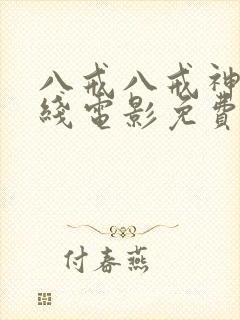 八戒八戒神
綫電影免費
付春燕